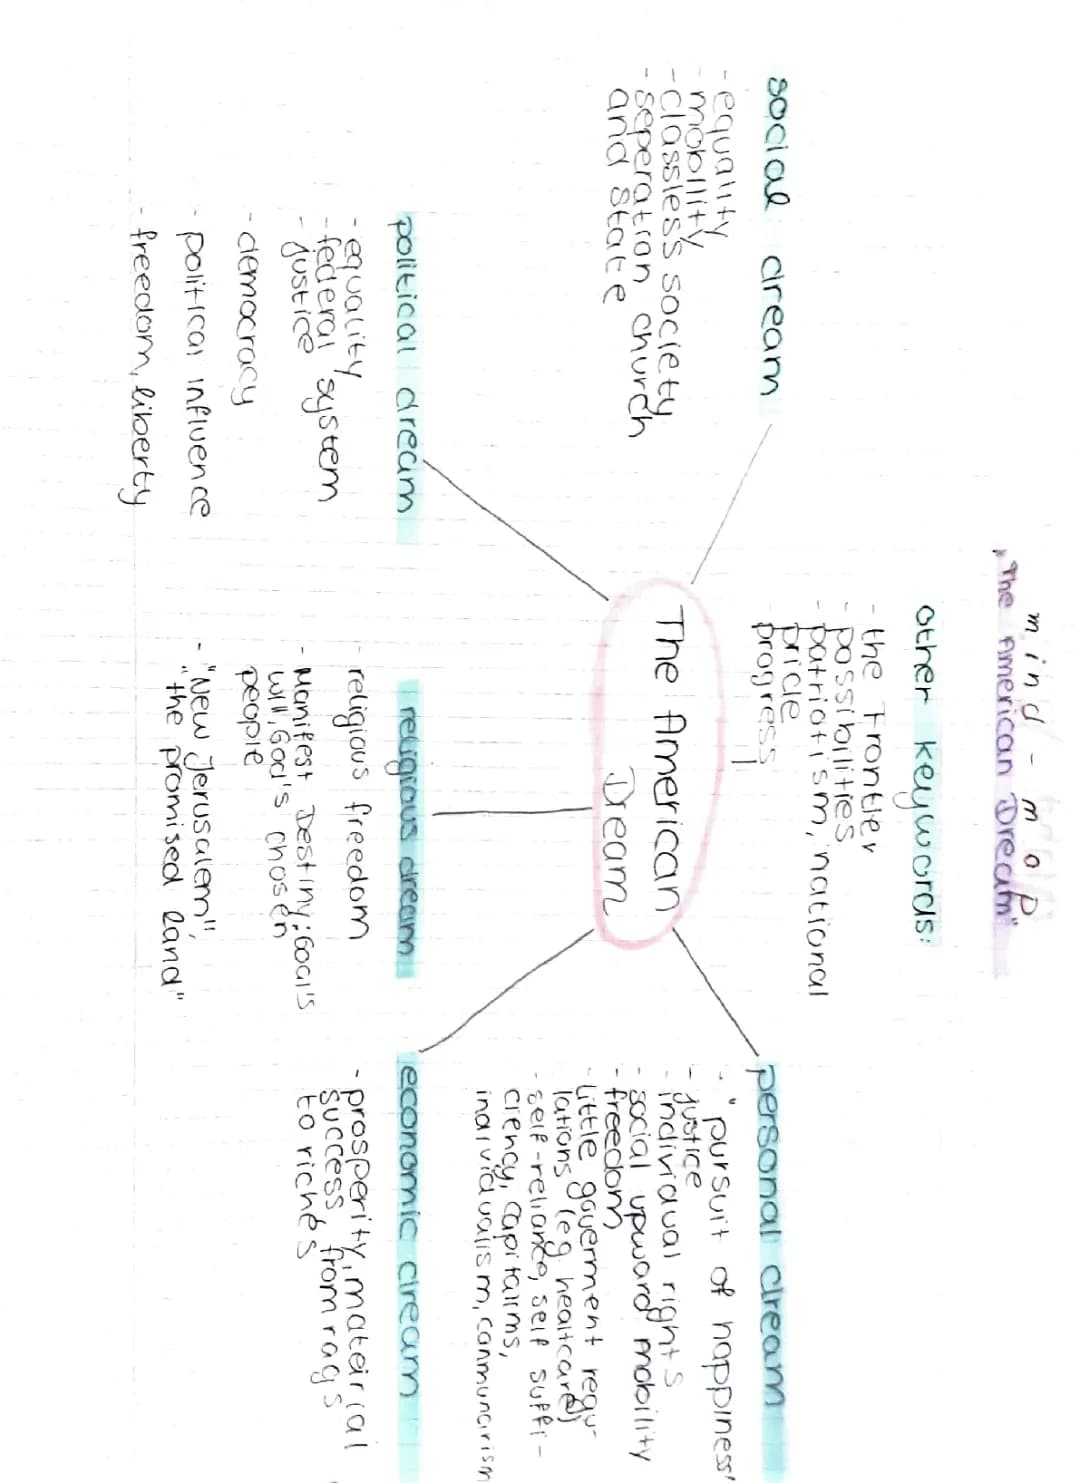 mind-map
"The American Dream"
other keywords:
- the Frontier
- possibilities
- patriotism, national
pride
progress
social dream
- equality
- mobility
- classless society
- seperation church
and state
The American
Dream
personal dream
- "pursuit of happiness"
- justice
- individual rights
- social upward mobility
- freedom
- little goverment regu-
lations (eg. healtcare)
- self-reliance, self suffi-
ciency, capitalims,
individualism, communarism
political dream
- equality
- federal system
- justice
- democracy
- political influence
- freedom, liberty
religious dream
- religious freedom
- Manifest Destiny: God's
will, God's chosen
people
- "New Jerusalem",
"the promised land"
economic dream
- prosperity, mateirial
success from rags
to riches